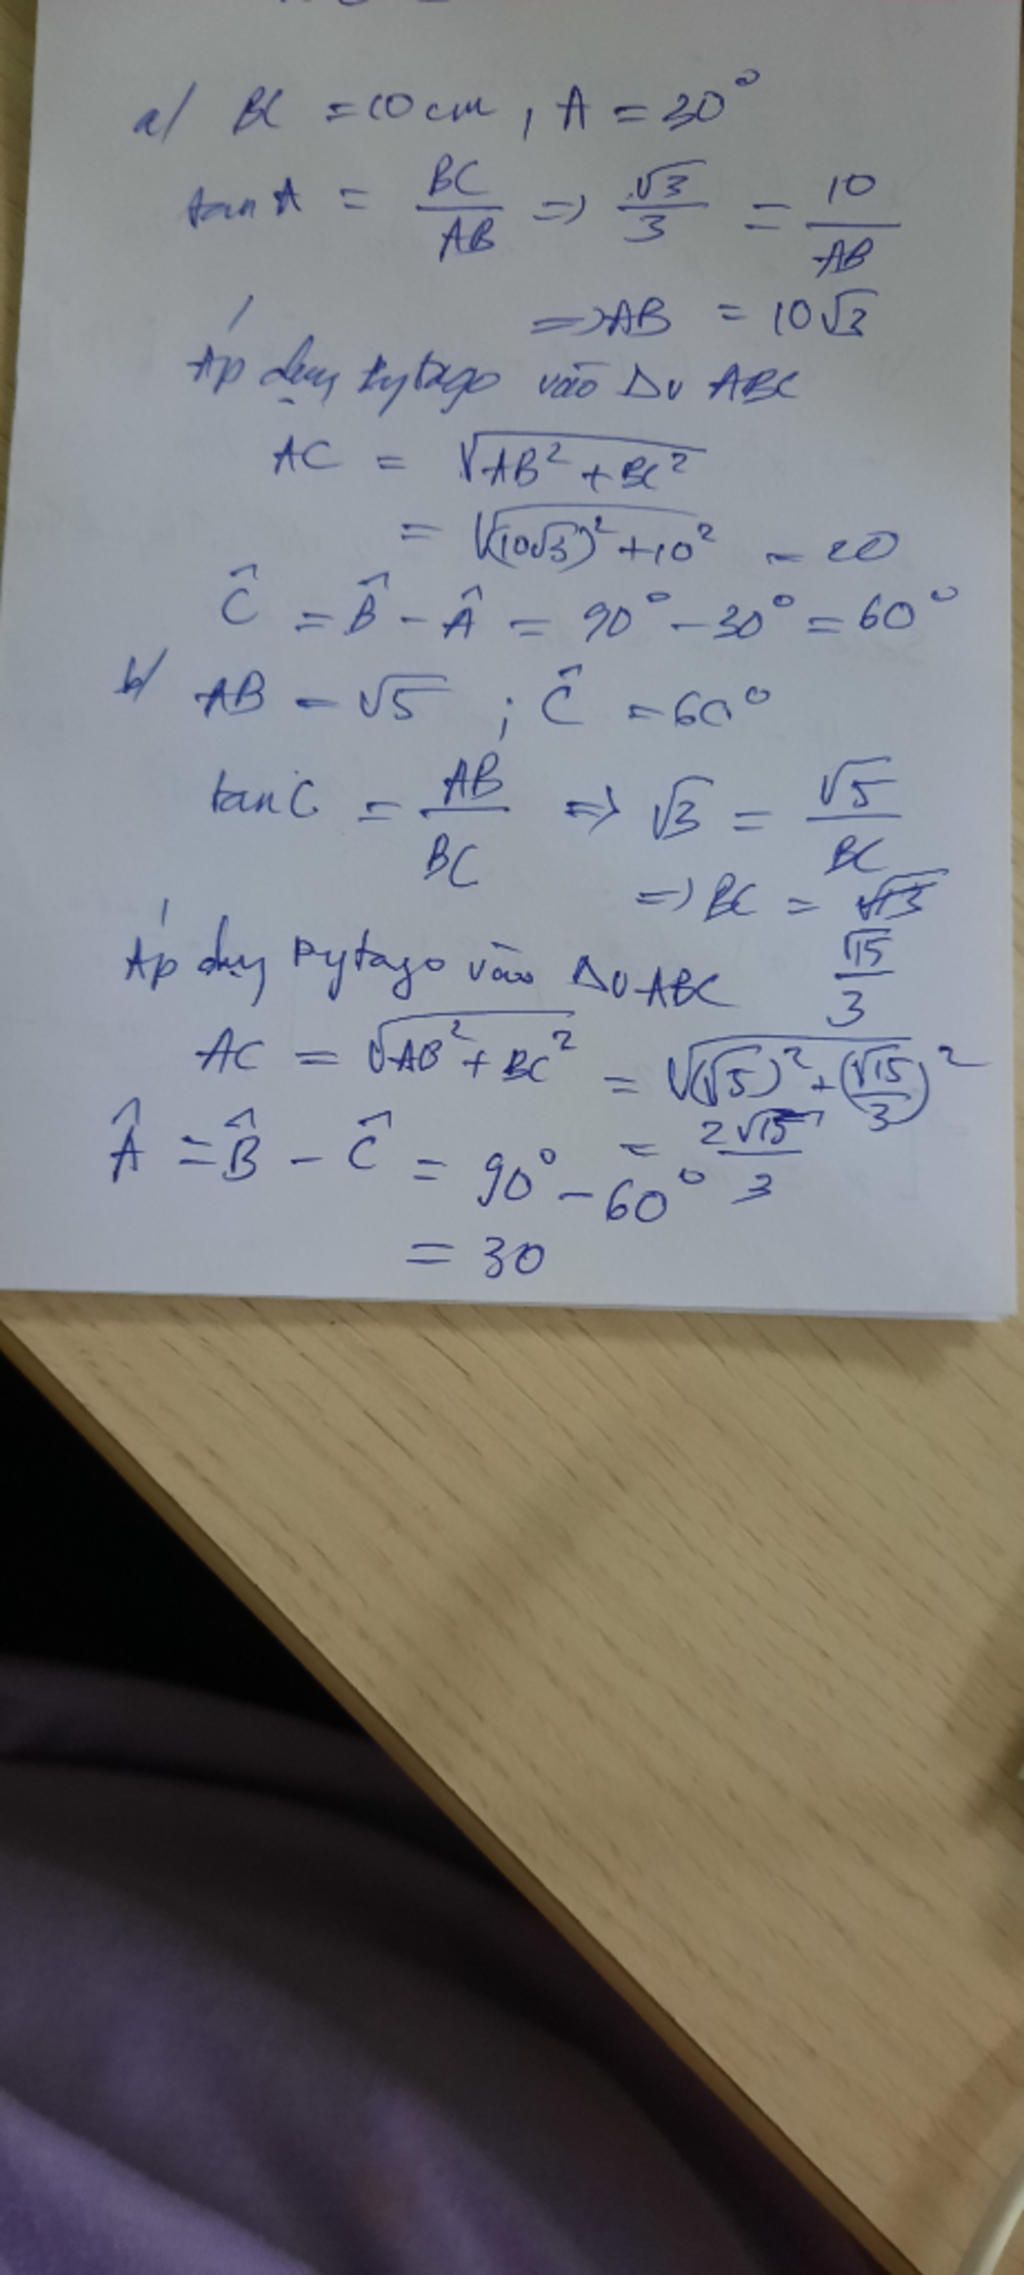 a/ BC = 10 cm, A = 30°
tan A = BC/AB => √3/3 = 10/AB
=> AB = 10√3
Áp dụng Pytago vào Δv ABC
AC = √(AB² + BC²)
= √((10√3)² + 10²) = 20
Ĉ = B̂ - Â = 90° - 30° = 60°
b/ AB = √5 ; Ĉ = 60°
tan C = AB/BC => √3 = √5/BC
=> BC = √15/3
Áp dụng Pytago vào Δv ABC
AC = √(AB² + BC²) = √((√5)² + (√15/3)²)
= 2√15/3
Â = B̂ - Ĉ = 90° - 60°
= 30